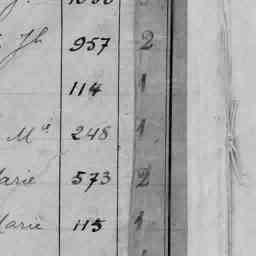 Jh 957 2
114 1
Mie 248 1
Marie 573 2
Marie 115 1